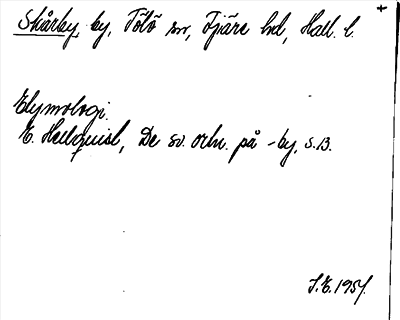 Skårby, by, Tölö sn, Fjäre hd, Hall. l.
Etymologi.
E. Hellquist, De sv. ortn. på -by, s. 13.
S.E. 1957.